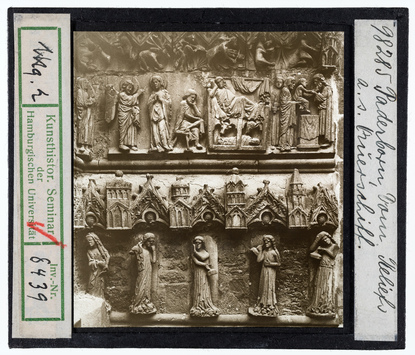 Wdg. 2
Kunsthistor. Seminar
der
Hamburgischen Universität
Inv.-Nr.
6439
98285 Paderborn, Dom Reliefs
a. s. Querschiff.